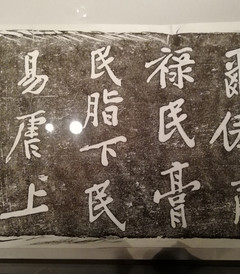 爾俸
禄民膏
民脂下民
易虐上